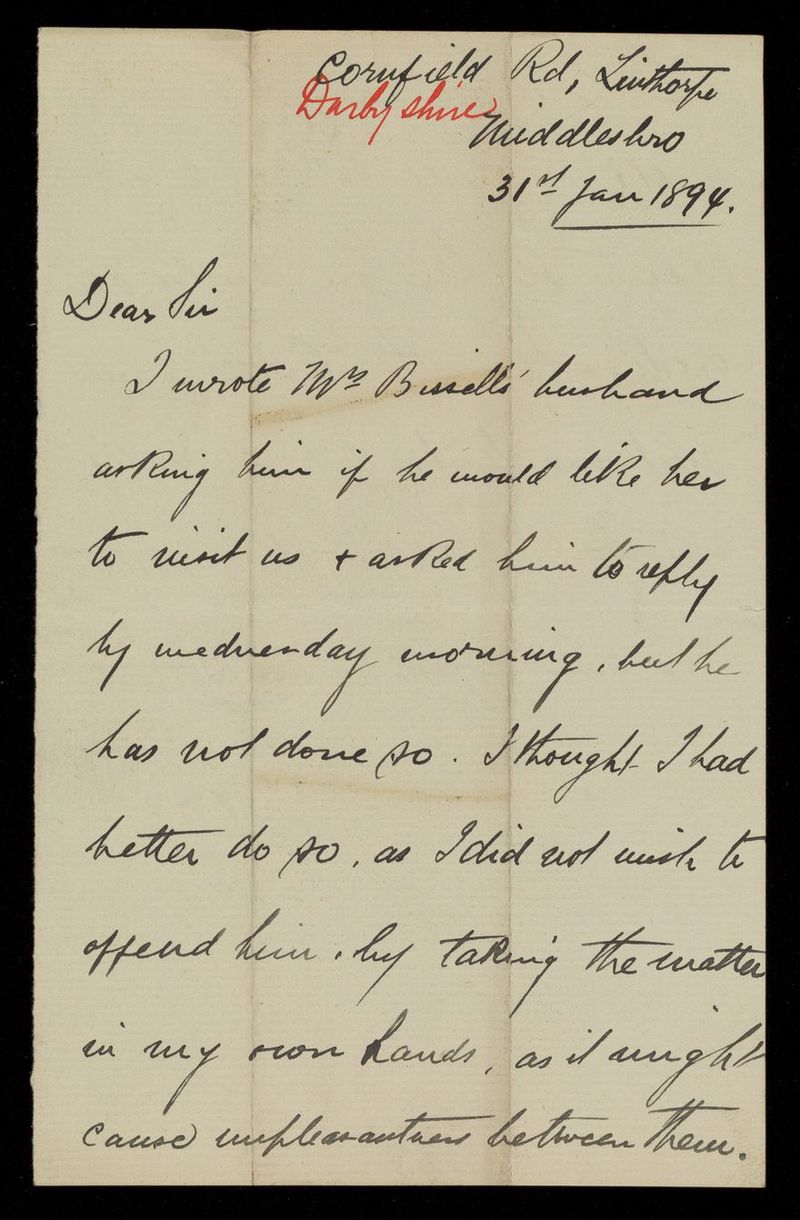 Cornfield Rd, Linthorpe
Darbyshire
Middlesbro
31st Jan 1894.
Dear Sir
I wrote Mrs Bissells' husband
asking him if he would like her
to visit us + asked him to reply
by wednesday morning, but he
has not done so. I thought I had
better do so, as I did not wish to
offend him, by taking the matter
in my own hands, as it might
cause unpleasantness between them.